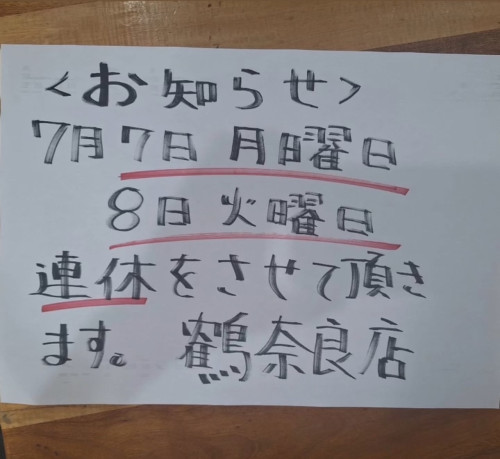 <お知らせ>
7月7日 月曜日
8日 火曜日
連休をさせて頂き
ます。 鶴奈良店